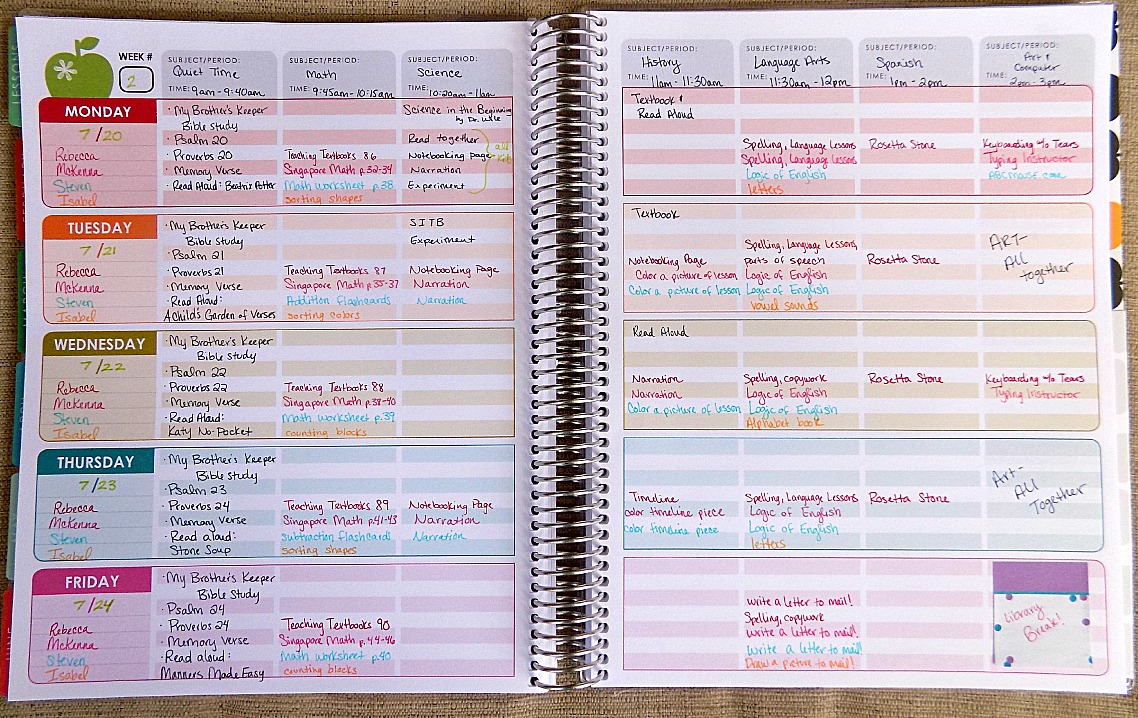 WEEK #
2
SUBJECT/PERIOD:
Quiet Time
TIME: 9am-9:40am
SUBJECT/PERIOD:
Math
TIME: 9:45am-10:15am
SUBJECT/PERIOD:
Science
TIME: 10:20am-11am
SUBJECT/PERIOD:
History
TIME: 11am-11:30am
SUBJECT/PERIOD:
Language Arts
TIME: 11:30am-12pm
SUBJECT/PERIOD:
Spanish
TIME: 1pm-2pm
SUBJECT/PERIOD:
Art &
Computer
TIME: 2pm-3pm
MONDAY
7/20
Rebecca
McKenna
Steven
Isabel
· My Brother's Keeper
Bible Study
· Psalm 20
· Proverbs 20
· Memory Verse
· Read Aloud: Beatrix Potter
Teaching Textbooks 86
Singapore Math p.32-34
Math worksheet p.38
sorting shapes
Science in the Beginning
by Dr. Wile
Read together
Notebooking Page
Narration
Experiment
all
kids
Textbook &
Read Aloud
Spelling, Language Lessons
Spelling, Language Lessons
Logic of English
letters
Rosetta Stone
Keyboarding w/o Tears
Typing Instructor
ABCmouse.com
TUESDAY
7/21
Rebecca
McKenna
Steven
Isabel
· My Brother's Keeper
Bible Study
· Psalm 21
· Proverbs 21
· Memory Verse
· Read Aloud:
A Child's Garden of Verses
Teaching Textbooks 87
Singapore Math p.35-37
Addition flashcards
sorting colors
SITB
Experiment
Notebooking Page
Narration
Narration
Textbook
Notebooking Page
Color a picture of lesson
Color a picture of lesson
Spelling, Language Lessons,
parts of speech
Logic of English
Logic of English
vowel sounds
Rosetta Stone
ART-
All
together
WEDNESDAY
7/22
Rebecca
McKenna
Steven
Isabel
· My Brother's Keeper
Bible Study
· Psalm 22
· Proverbs 22
· Memory Verse
· Read Aloud:
Katy No-Pocket
Teaching Textbooks 88
Singapore Math p.38-40
Math worksheet p.39
counting blocks
Read Aloud
Narration
Narration
Color a picture of lesson
Spelling, copywork
Logic of English
Logic of English
Alphabet book
Rosetta Stone
Keyboarding w/o Tears
Typing Instructor
THURSDAY
7/23
Rebecca
McKenna
Steven
Isabel
· My Brother's Keeper
Bible Study
· Psalm 23
· Proverbs 24
· Memory Verse
· Read aloud:
Stone Soup
Teaching Textbooks 89
Singapore Math p.41-43
subtraction flashcards
sorting shapes
Notebooking Page
Narration
Narration
Timeline
color timeline piece
color timeline piece
Spelling, Language Lessons
Logic of English
Logic of English
letters
Rosetta Stone
Art-
All
Together
FRIDAY
7/24
Rebecca
McKenna
Steven
Isabel
· My Brother's Keeper
Bible Study
· Psalm 24
· Proverbs 24
· Memory Verse
· Read aloud:
Manners Made Easy
Teaching Textbooks 90
Singapore Math p.44-46
Math worksheet p.40
counting blocks
write a letter to mail!
Spelling, copywork
write a letter to mail!
write a letter to mail!
Draw a picture to mail!
Library
Break!